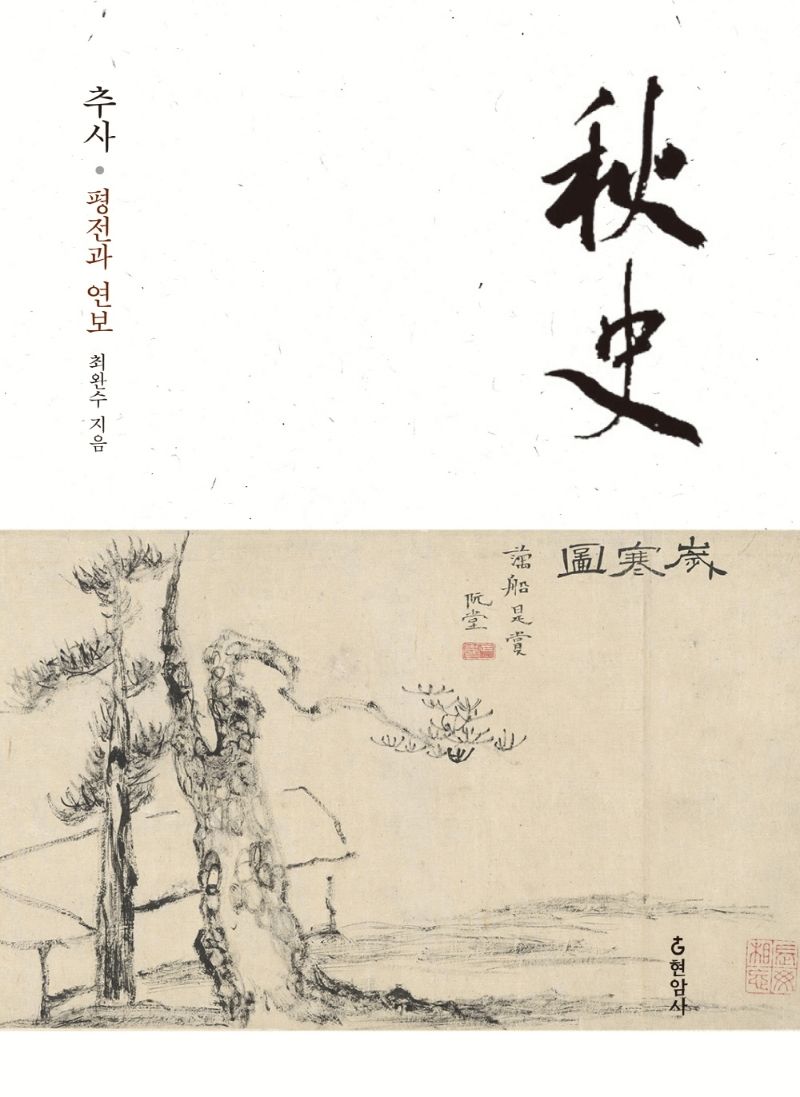 추사 • 평전과 연보 최완수 지음
秋史
歲寒圖
藕船是賞
阮堂
현암사
長毋相忘